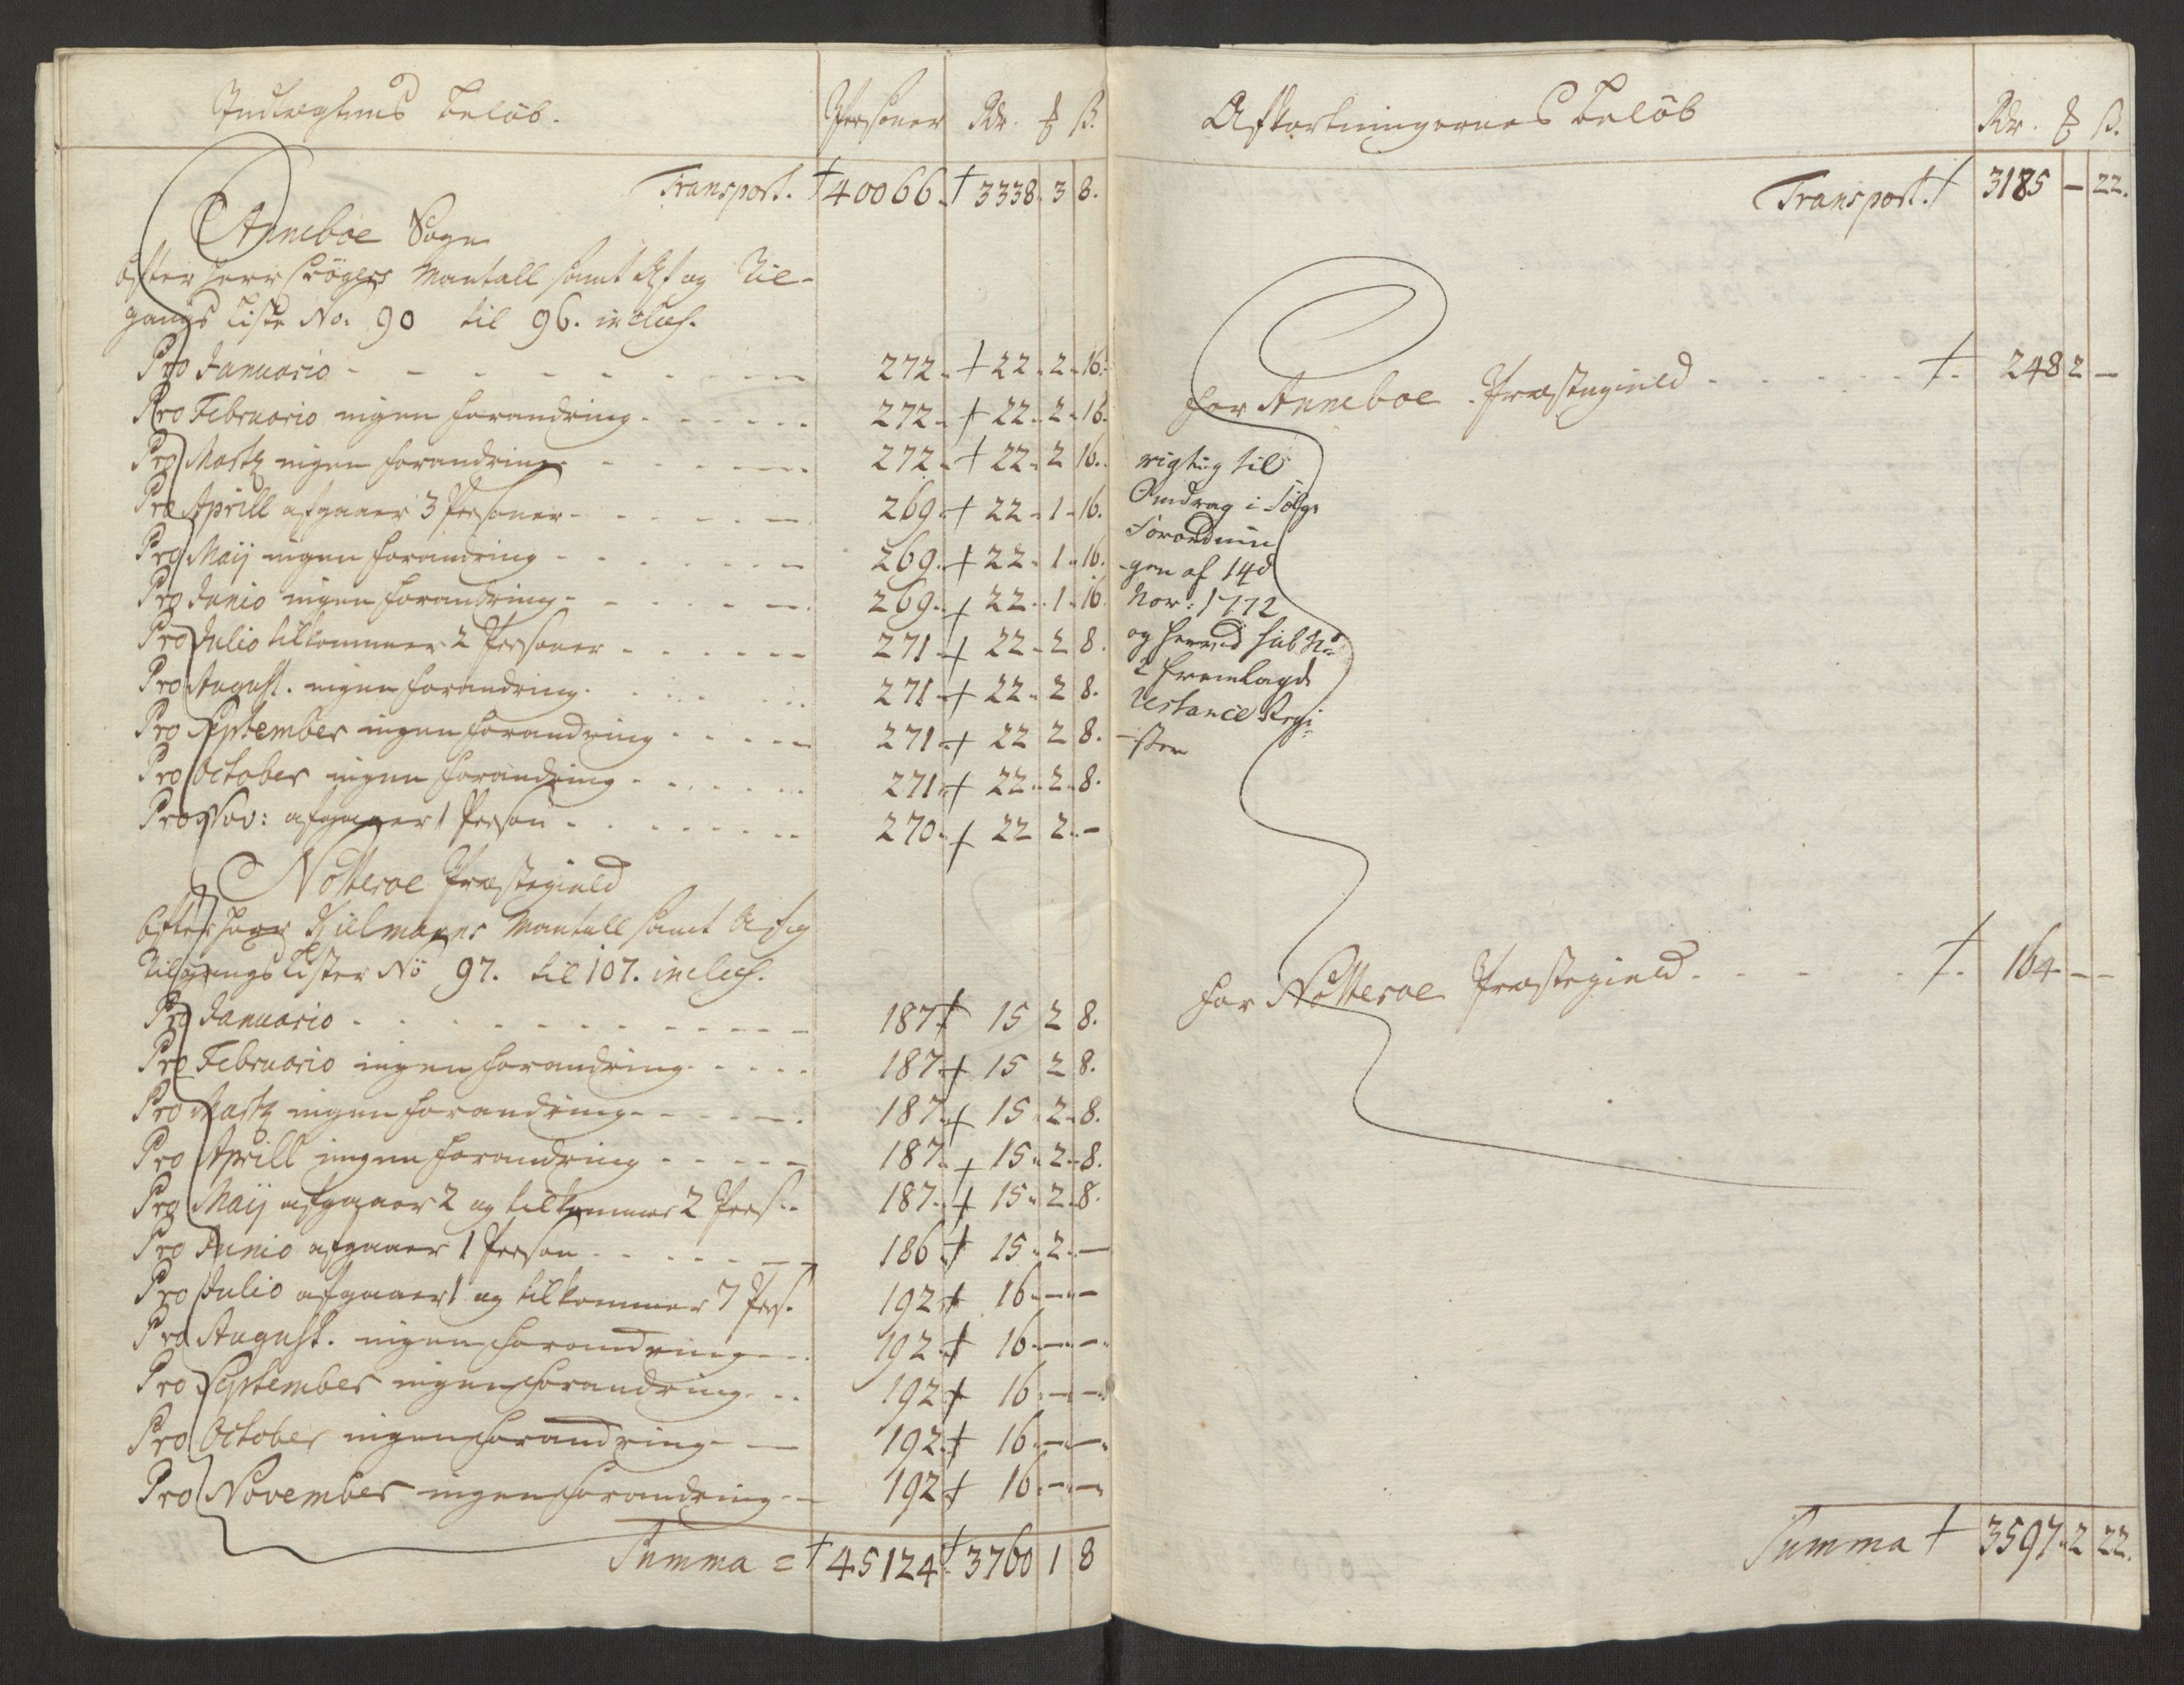 Indtægtens Beløb. Personer Rdr. ß.
Transport. † 40066. † 3338. 3 8.
Anneboe Sogn
Efter Herr Crögers Mantall samt Af og Til-
gangs Liste No: 90 til 96. inclus.
Pro Januario - - - 272. + 22. 2. 16.
Pro Februario ingen forandring - - - 272. + 22. 2. 16.
Pro Martz ingen forandring - - - 272. + 22. 2 16.
Pro Aprill afgaaer 3 Personer - - - 269. + 22. 1. 16.
Pro Maij ingen forandring - - - 269. + 22. 1. 16.
Pro Junio ingen forandring - - - 269. + 22. 1. 16
Pro Julio tilkommer 2 Personer - - - 271. + 22. 2 8.
Pro August. ingen forandring - - - 271. + 22. 2 8.
Pro September ingen forandring - - - 271. + 22 2 8.
Pro October ingen forandring - - - 271. + 22. 2. 8.
Pro Nov: afgaaer 1 Person - - - 270. + 22 2. -
Nötteröe Præstegield
Efter Herr Kielmanns Mantall samt Af og
Tilgangs Lister No 97. til 107. inclus.
Pro Januario - - - 187 + 15 2 8.
Pro Februario ingen forandring - - - 187. + 15 2 8.
Pro Martz ingen forandring - - - 187. + 15. 2. 8.
Pro Aprill ingen forandring - - - 187. + 15. 2. 8.
Pro Maij afgaaer 2 og tilkommer 2 Pers. - 187. + 15. 2. 8.
Pro Junio afgaaer 1 Person - - - 186 + 15. 2. -
Pro Julio afgaaer 1 og tilkommer 7 Pers. 192 + 16. - -
Pro August. ingen forandring - - 192. + 16. - -
Pro September ingen forandring - - 192 + 16. - -
Pro October ingen forandring - - 192. + 16. - -
Pro November ingen forandring - - 192 + 16. - -
Summa = † 45124 † 3760 1 8
Afkortningernes Beløb Rdr. ß.
Transport. † 3185 - 22.
For Anneboe Præstegield - - - †. 248 2 -
rigtig til
Omdrag i Følge
Forordnin
-gen af 14d
Nov: 1772
og herved sub No
2 fremlagde
Restance Regi
-ster
For Nötteröe Præstegield - - - †. 164 - -
Summa † 3597. 2 22.